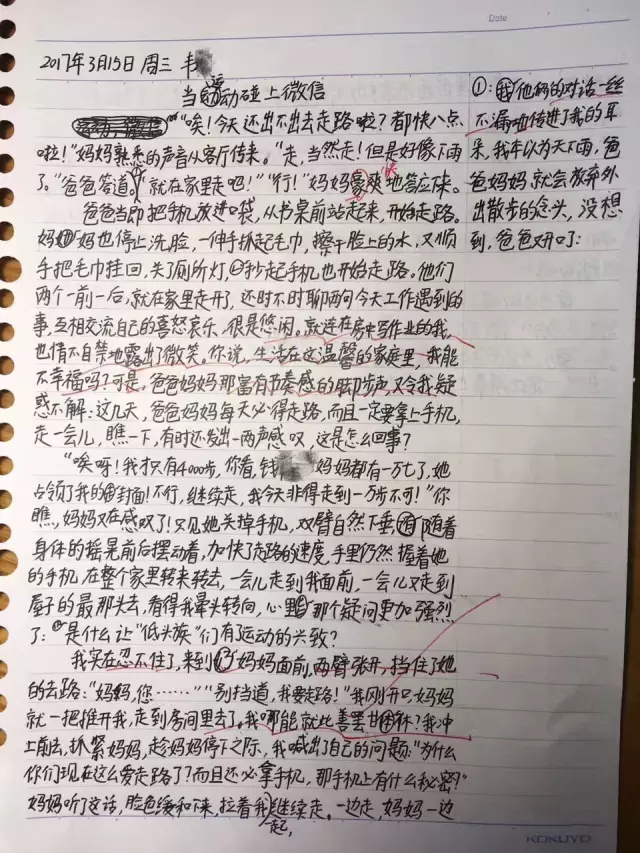 Date
2017年3月15日 周三 韦
当运动碰上微信
"唉！今天还出不出去走路啦？都快八点
啦！"妈妈熟悉的声音从客厅传来。"走，当然走！但是好像下雨
了。"爸爸答道，"就在家里走吧！""行！"妈妈豪爽地答应下来。
爸爸当即把手机放进口袋，从书桌前站起来，开始走路。
妈妈也停止洗脸，一伸手抓起毛巾，擦干脸上的水，又顺
手把毛巾挂回，关了厕所灯，抄起手机也开始走路。他们
两个一前一后，就在家里走开了，还时不时聊两句今天工作遇到的
事，互相交流自己的喜怒哀乐，很是悠闲。就连在房中写作业的我，
也情不自禁地露出了微笑。你说，生活在这温馨的家庭里，我能
不幸福吗？可是，爸爸妈妈那富有节奏感的脚步声，又令我疑
惑不解：这几天，爸爸妈妈每天必得走路，而且一定要拿上手机，
走一会儿，瞧一下，有时还发出一两声感叹，这是怎么回事？
"唉呀！我才只有4000步，你看，钱妈妈都有一万七了，她
占领了我的封面！不行，继续走，我今天非得走到一万步不可！"你
瞧，妈妈又在感叹了！只见她关掉手机，双臂自然下垂，随着
身体的摇晃前后摆动着，加快了走路的速度，手里仍然握着她
的手机，在整个家里转来转去，一会儿走到我面前，一会儿又走到
屋子的最那头去，看得我晕头转向，心里那个疑问更加强烈
了："是什么让"低头族"们有了运动的兴致？
我实在忍不住了，来到妈妈面前，两臂张开，挡住了她
的去路："妈妈，您……""别挡道，我要走路！"我刚开口，妈妈
就一把推开我，走到房间里去了。我哪能就此善罢甘休？我冲
上前去，抓紧妈妈，趁妈妈停下之际，我喊出了自己的问题："为什么
你们现在这么爱走路了？而且还必拿手机，那手机上有什么秘密？"
妈妈听了这话，脸色缓和下来，拉着我一起继续走。一边走，妈妈一边
①：他俩的对话一丝
不漏地传进了我的耳
朵，我本以为天下雨，爸
爸妈妈就会放弃外
出散步的念头，没想
到，爸爸又开口了：
KOKUYO